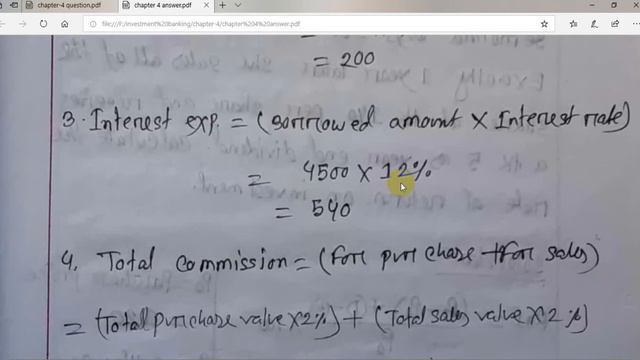 chapter-4 question.pdf
chapter 4 answer.pdf
file:///F:/investment%20banking/chapter-4/chapter%204%20answer.pdf
= 200
3. Interest exp. = (borrowed amount X Interest rate)
= 4500 X 12%
= 540
4. Total commission = (For purchase + For sales)
= (Total purchase value X 2%) + (Total sales value X 2%)